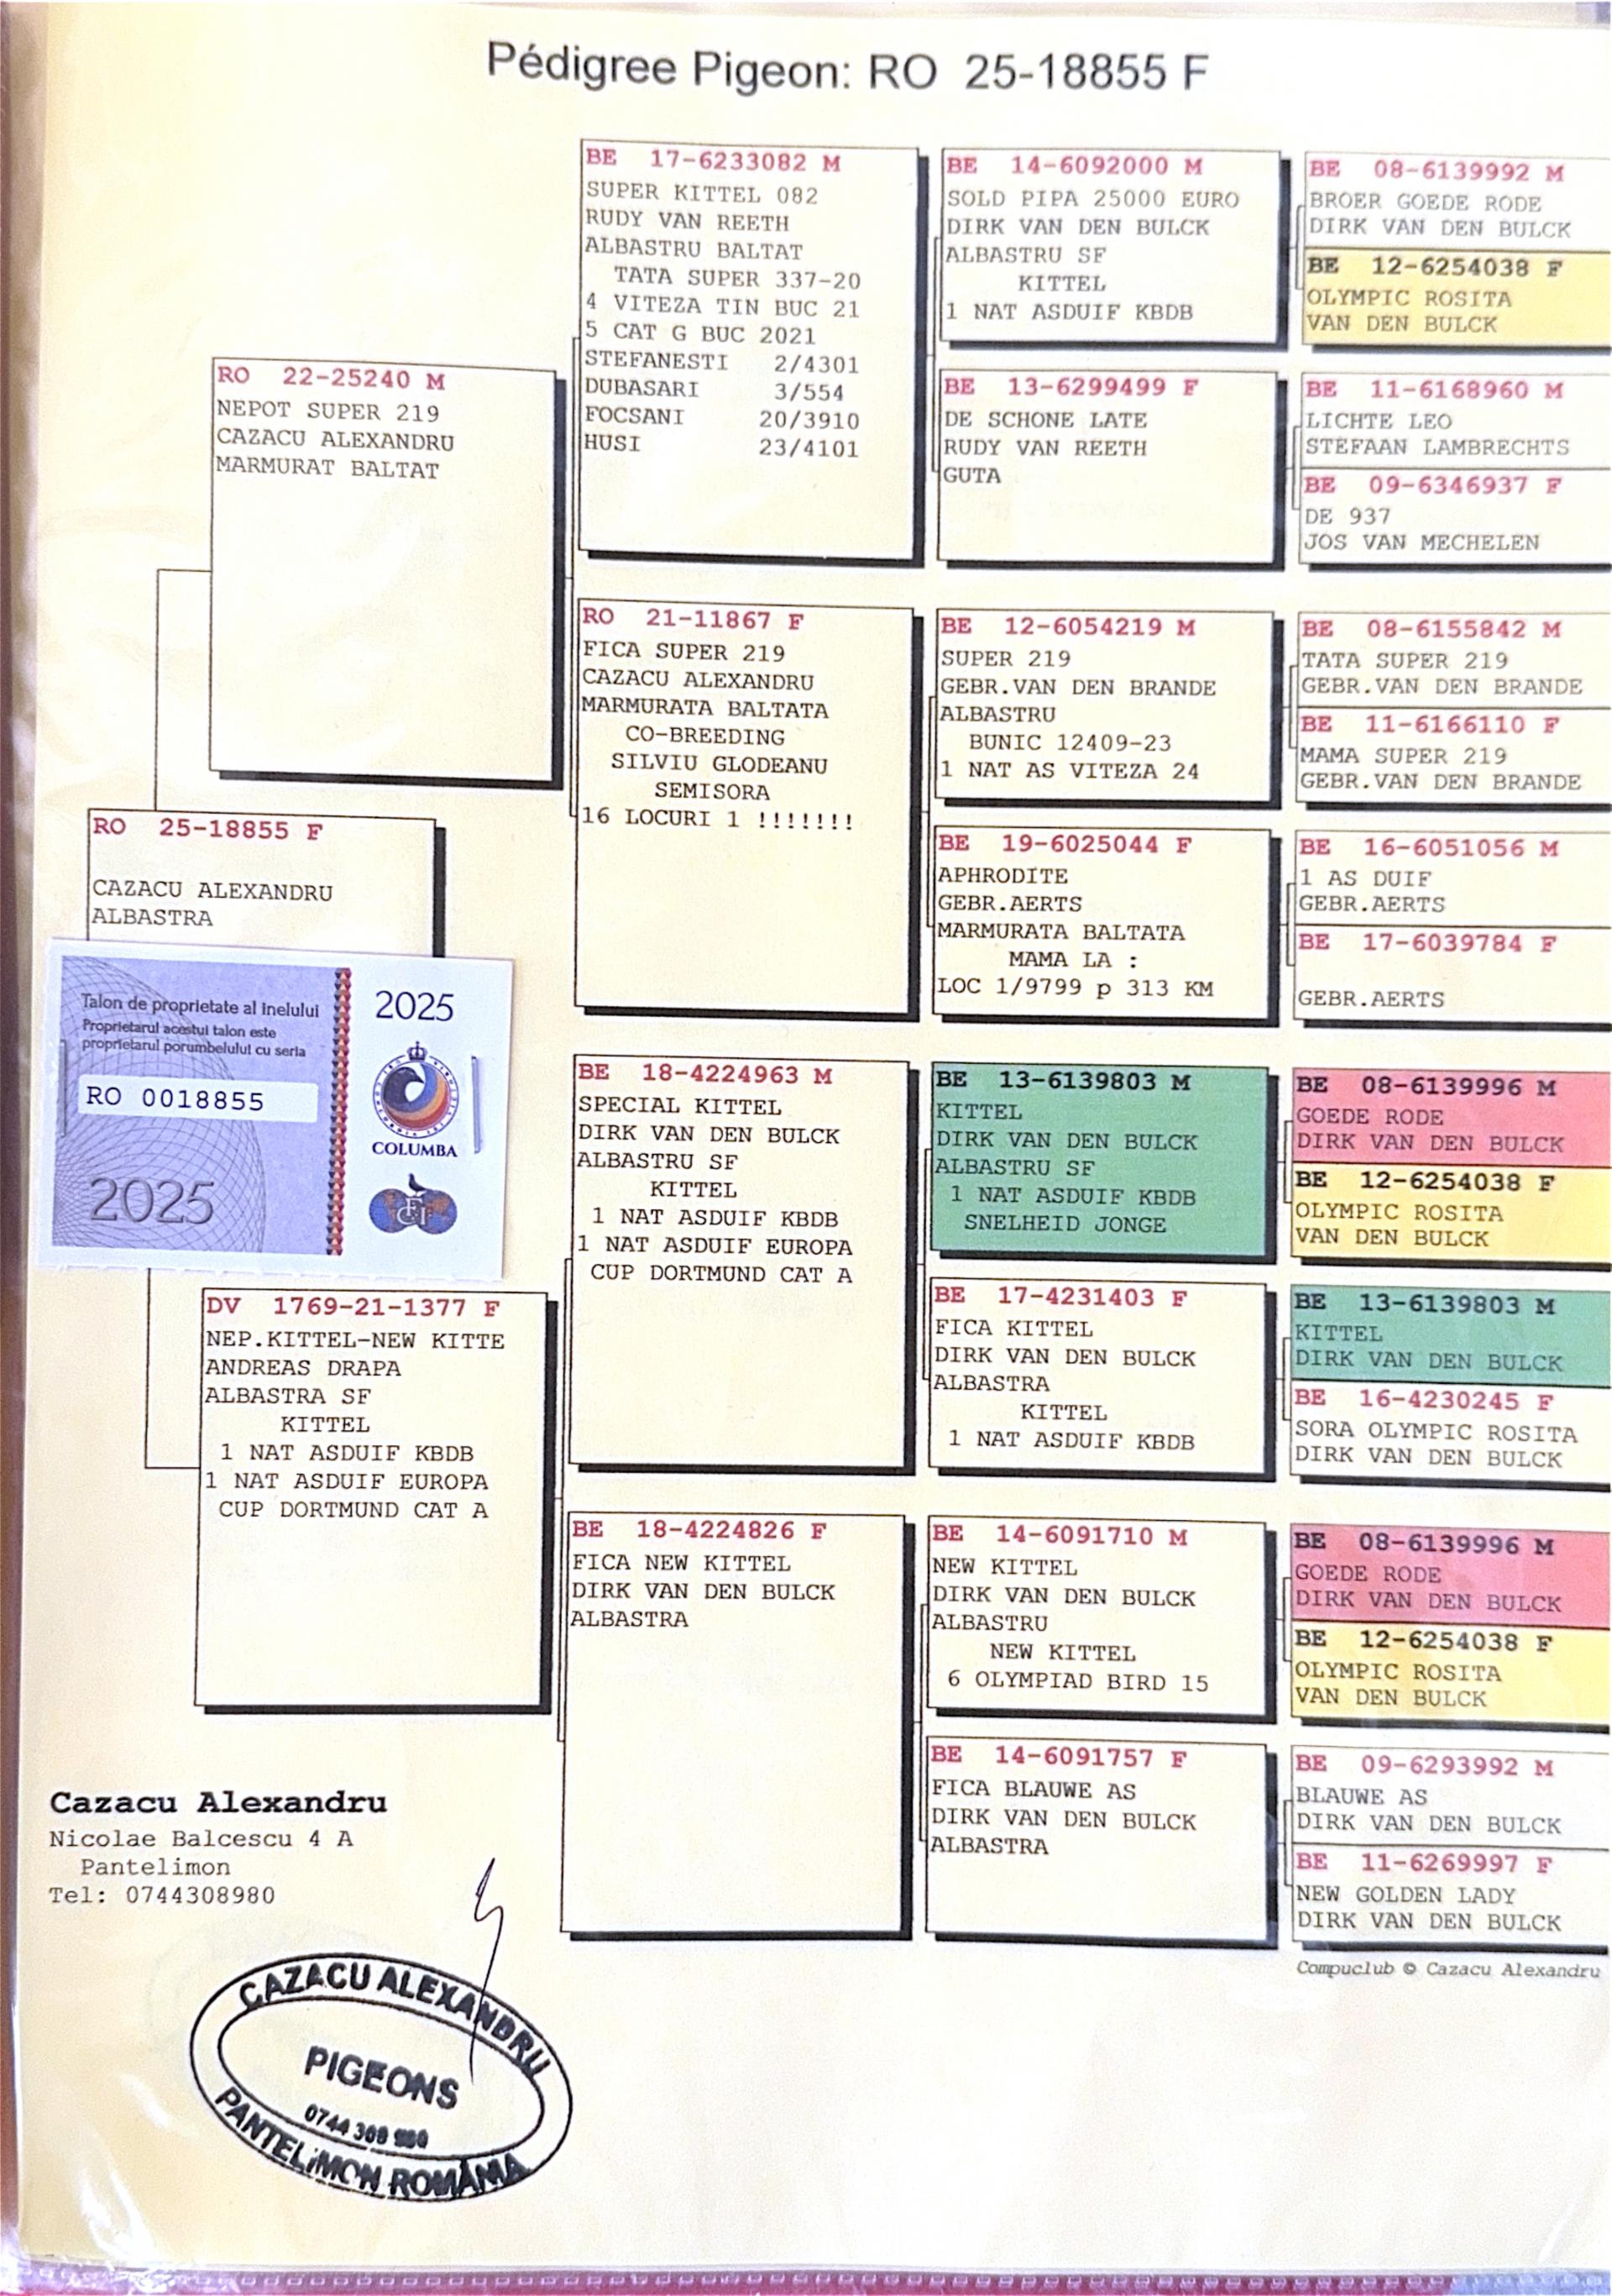 Pédigree Pigeon: RO 25-18855 F
RO 25-18855 F
CAZACU ALEXANDRU
ALBASTRA
Talon de proprietate al inelului
Proprietarul acestui talon este
proprietarul porumbelului cu seria
RO 0018855
2025
2025
COLUMBA
FCI
RO 22-25240 M
NEPOT SUPER 219
CAZACU ALEXANDRU
MARMURAT BALTAT
DV 1769-21-1377 F
NEP.KITTEL-NEW KITTE
ANDREAS DRAPA
ALBASTRA SF
KITTEL
1 NAT ASDUIF KBDB
1 NAT ASDUIF EUROPA
CUP DORTMUND CAT A
BE 17-6233082 M
SUPER KITTEL 082
RUDY VAN REETH
ALBASTRU BALTAT
TATA SUPER 337-20
4 VITEZA TIN BUC 21
5 CAT G BUC 2021
STEFANESTI 2/4301
DUBASARI 3/554
FOCSANI 20/3910
HUSI 23/4101
RO 21-11867 F
FICA SUPER 219
CAZACU ALEXANDRU
MARMURATA BALTATA
CO-BREEDING
SILVIU GLODEANU
SEMISORA
16 LOCURI 1 !!!!!!!
BE 18-4224963 M
SPECIAL KITTEL
DIRK VAN DEN BULCK
ALBASTRU SF
KITTEL
1 NAT ASDUIF KBDB
1 NAT ASDUIF EUROPA
CUP DORTMUND CAT A
BE 18-4224826 F
FICA NEW KITTEL
DIRK VAN DEN BULCK
ALBASTRA
BE 14-6092000 M
SOLD PIPA 25000 EURO
DIRK VAN DEN BULCK
ALBASTRU SF
KITTEL
1 NAT ASDUIF KBDB
BE 13-6299499 F
DE SCHONE LATE
RUDY VAN REETH
GUTA
BE 12-6054219 M
SUPER 219
GEBR.VAN DEN BRANDE
ALBASTRU
BUNIC 12409-23
1 NAT AS VITEZA 24
BE 19-6025044 F
APHRODITE
GEBR.AERTS
MARMURATA BALTATA
MAMA LA :
LOC 1/9799 p 313 KM
BE 13-6139803 M
KITTEL
DIRK VAN DEN BULCK
ALBASTRU SF
1 NAT ASDUIF KBDB
SNELHEID JONGE
BE 17-4231403 F
FICA KITTEL
DIRK VAN DEN BULCK
ALBASTRA
KITTEL
1 NAT ASDUIF KBDB
BE 14-6091710 M
NEW KITTEL
DIRK VAN DEN BULCK
ALBASTRU
NEW KITTEL
6 OLYMPIAD BIRD 15
BE 14-6091757 F
FICA BLAUWE AS
DIRK VAN DEN BULCK
ALBASTRA
BE 08-6139992 M
BROER GOEDE RODE
DIRK VAN DEN BULCK
BE 12-6254038 F
OLYMPIC ROSITA
VAN DEN BULCK
BE 11-6168960 M
LICHTE LEO
STEFAAN LAMBRECHTS
BE 09-6346937 F
DE 937
JOS VAN MECHELEN
BE 08-6155842 M
TATA SUPER 219
GEBR.VAN DEN BRANDE
BE 11-6166110 F
MAMA SUPER 219
GEBR.VAN DEN BRANDE
BE 16-6051056 M
1 AS DUIF
GEBR.AERTS
BE 17-6039784 F
GEBR.AERTS
BE 08-6139996 M
GOEDE RODE
DIRK VAN DEN BULCK
BE 12-6254038 F
OLYMPIC ROSITA
VAN DEN BULCK
BE 13-6139803 M
KITTEL
DIRK VAN DEN BULCK
BE 16-4230245 F
SORA OLYMPIC ROSITA
DIRK VAN DEN BULCK
BE 08-6139996 M
GOEDE RODE
DIRK VAN DEN BULCK
BE 12-6254038 F
OLYMPIC ROSITA
VAN DEN BULCK
BE 09-6293992 M
BLAUWE AS
DIRK VAN DEN BULCK
BE 11-6269997 F
NEW GOLDEN LADY
DIRK VAN DEN BULCK
Compuclub © Cazacu Alexandru
Cazacu Alexandru
Nicolae Balcescu 4 A
Pantelimon
Tel: 0744308980
CAZACU ALEXANDRU
PIGEONS
0744 308 980
PANTELIMON ROMÂNIA